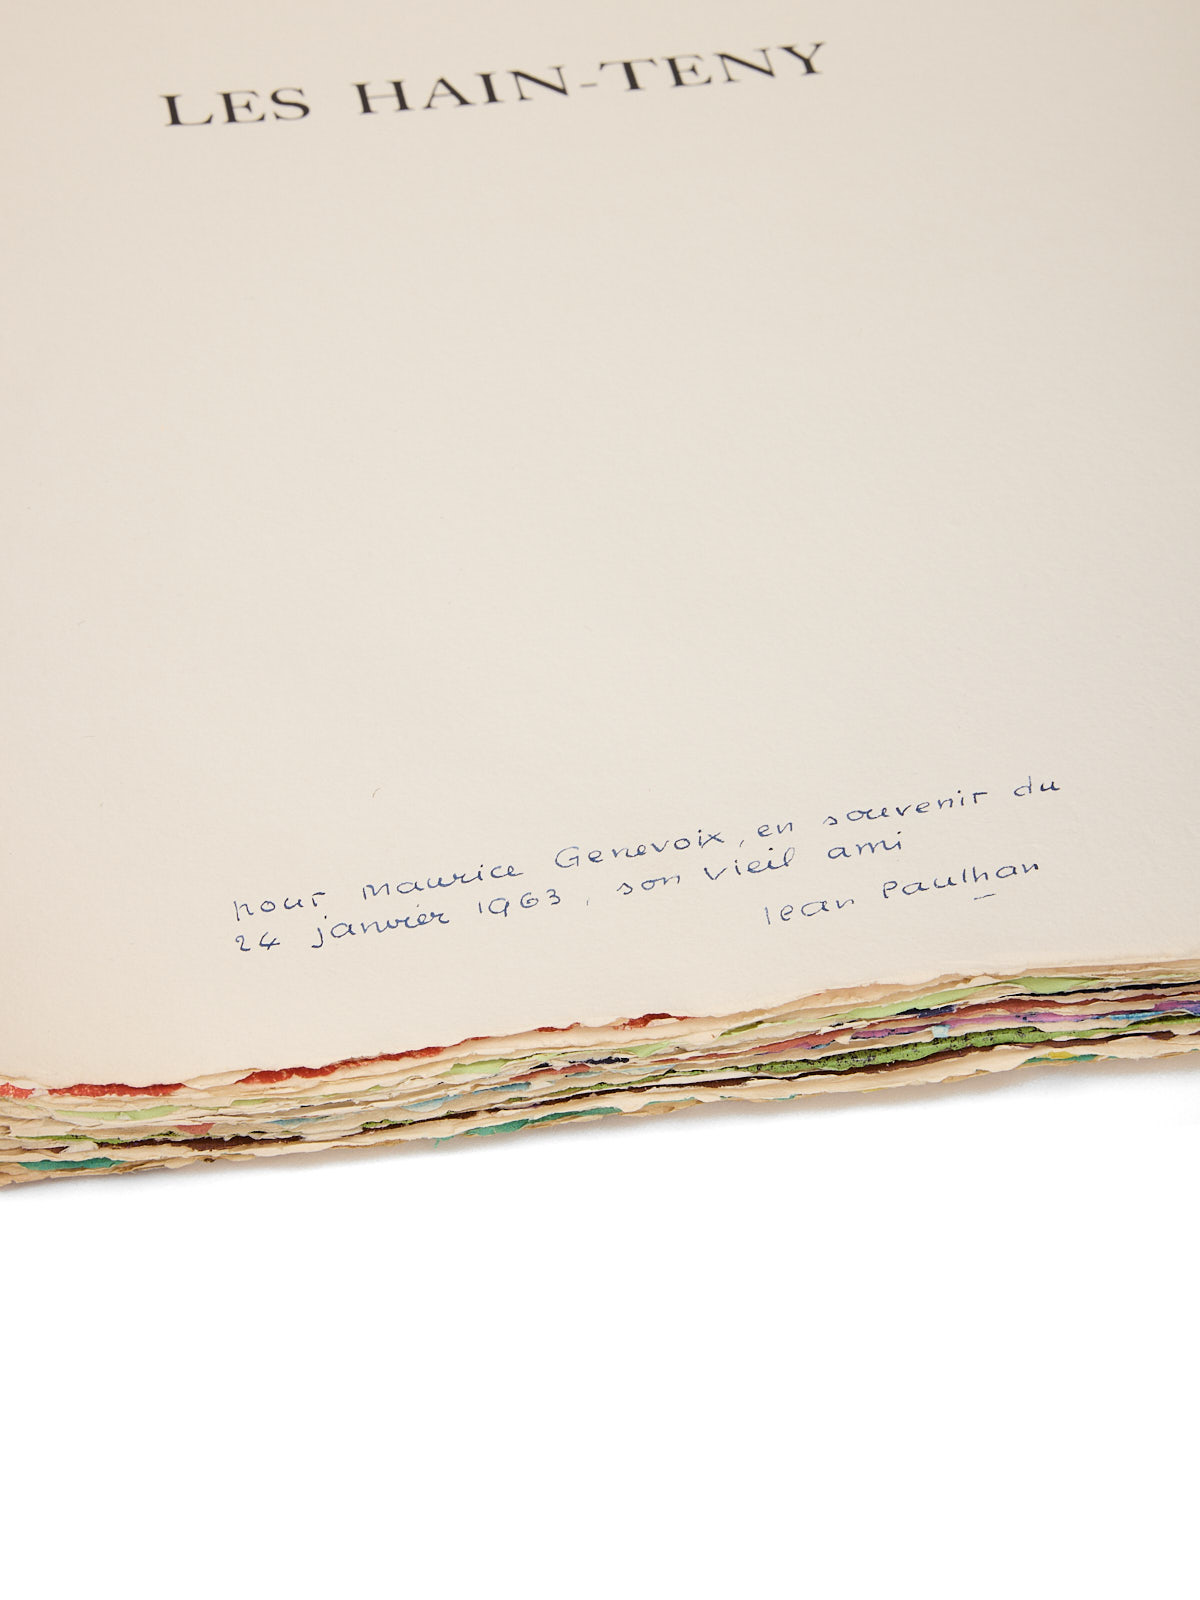 LES HAIN-TENY
pour Maurice Genevoix, en souvenir du
24 janvier 1963, son vieil ami
Jean Paulhan